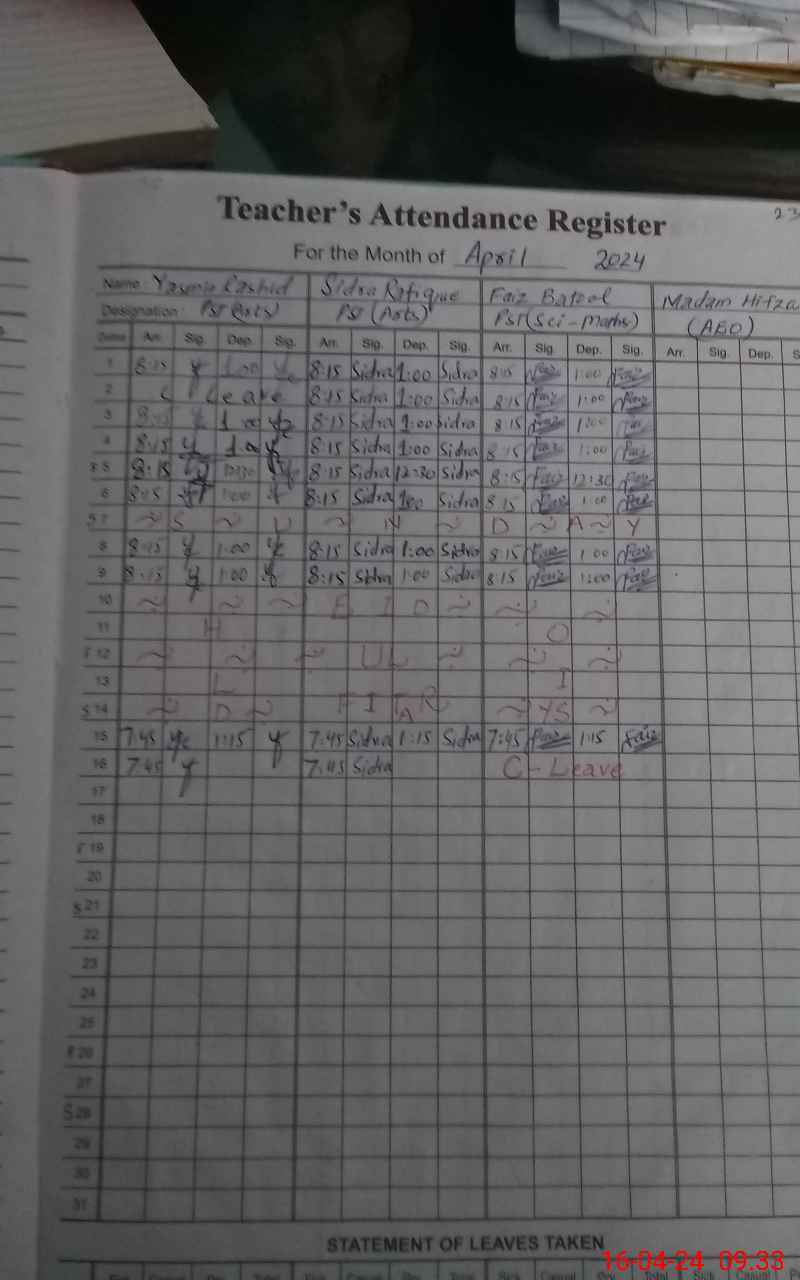 Teacher's Attendance Register
23
For the Month of April 2024
Name: Yasmin Rashid Sidra Rafique Faiz Batool Madam Hifza
Designation: PST (Arts) PST (Arts) PST (Sci-Maths) (AEO)
Dates Arr. Sig. Dep. Sig. Arr. Sig. Dep. Sig. Arr. Sig. Dep. Sig. Arr. Sig. Dep. S
1 8:15 1:00 8:15 Sidra 1:00 Sidra 8:15 Faiz 1:00 Faiz
2 C Leave 8:15 Sidra 1:00 Sidra 8:15 Faiz 1:00 Faiz
3 8:15 1:00 8:15 Sidra 1:00 Sidra 8:15 Faiz 1:00 Faiz
4 8:15 1:00 8:15 Sidra 1:00 Sidra 8:15 Faiz 1:00 Faiz
F 5 8:15 12:30 8:15 Sidra 12:30 Sidra 8:15 Faiz 12:30 Faiz
6 8:15 1:00 8:15 Sidra 1:00 Sidra 8:15 Faiz 1:00 Faiz
S 7 ~ S ~ U ~ N ~ D ~ A ~ Y
8 8:15 1:00 8:15 Sidra 1:00 Sidra 8:15 Faiz 1:00 Faiz
9 8:15 1:00 8:15 Sidra 1:00 Sidra 8:15 Faiz 1:00 Faiz
10 E I D
11 H O
F 12 UL
13 L I
S 14 D FITAR YS
15 7:45 1:15 7:45 Sidra 1:15 Sidra 7:45 Faiz 1:15 Faiz
16 7:45 7:45 Sidra C-Leave
17
18
F 19
20
S 21
22
23
24
25
F 26
27
S 28
29
30
31
STATEMENT OF LEAVES TAKEN
16-04-24 09.33